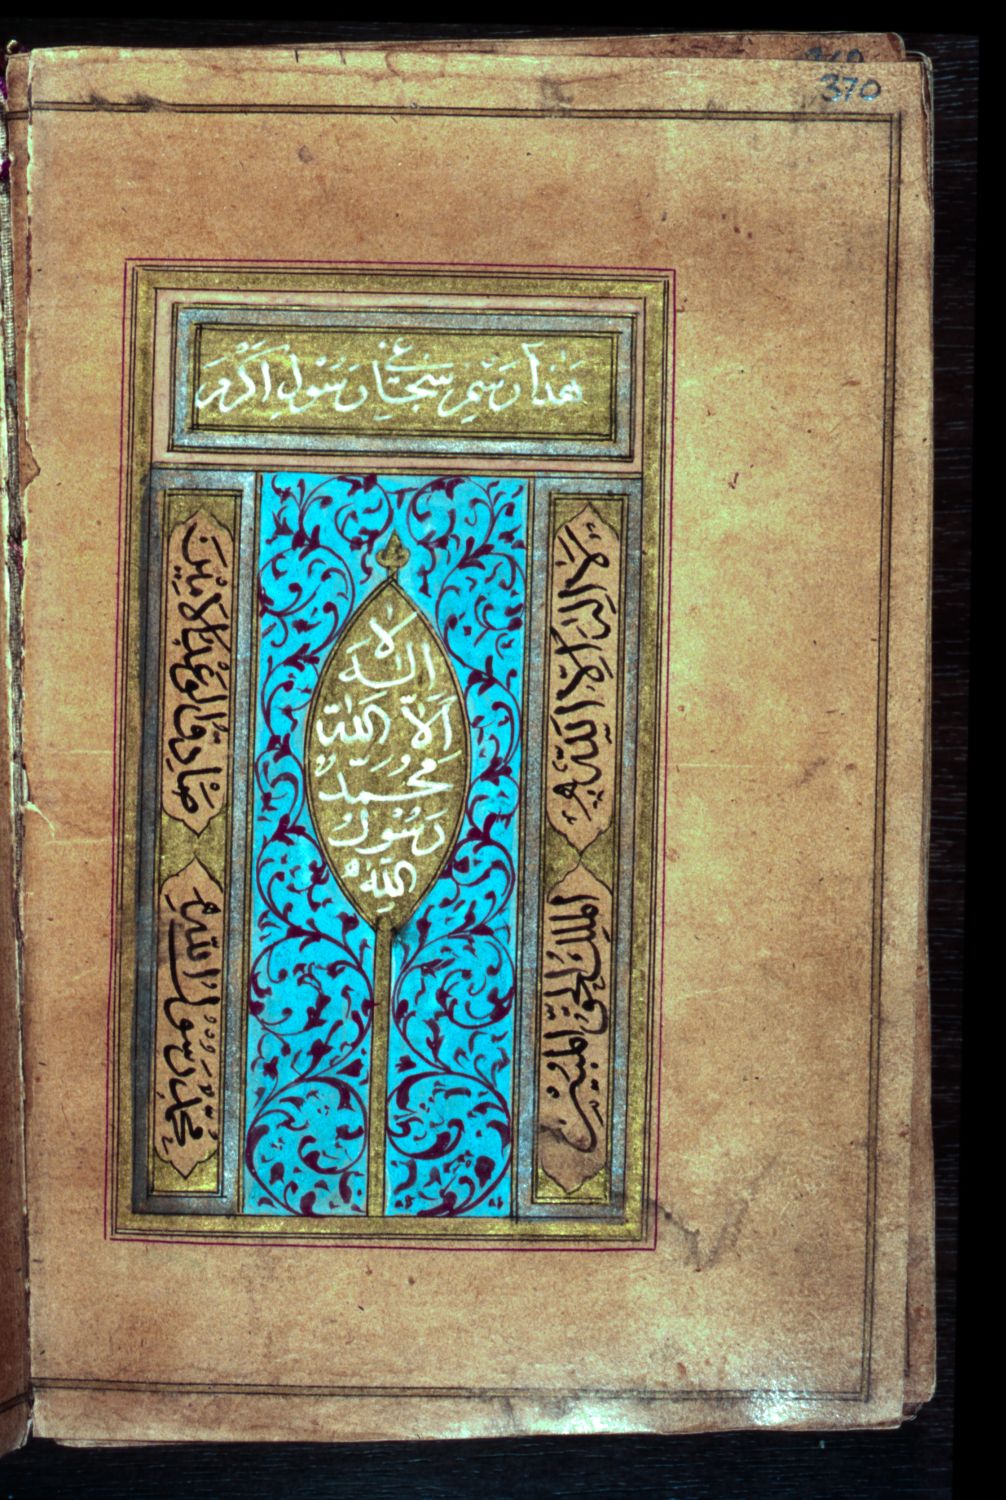 370
هذا رسم سنجاغ رسول اكرم
لا
اله
الا الله
محمد
رسول
الله
لا اله الا الله
الملك الحق المبين
محمد رسول الله
صادق الوعد الامين